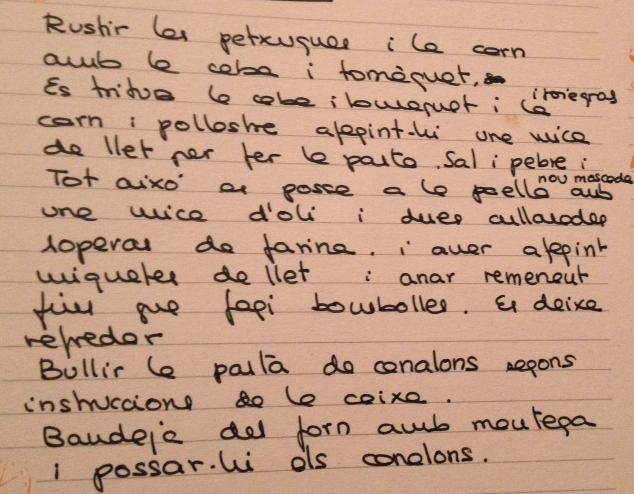 Rustir les petxugues i la carn
amb la ceba i tomàquet.
Es tritura la ceba i tomaquet i la i foiegras
carn i pollastre afegint-li una mica
de llet per fer la pasta. Sal i pebre i
Tot aixó es possa a la paella nou moscada amb
una mica d'oli i dues cullarades
soperas de farina. i aner afegint
miquetes de llet i anar remenent
fins que fagi bombolles. Es deixa
refredar
Bullir la pastà de canalons segons
instruccions de la caixa.
Baudeja del forn amb mantega
i possar-li els canalons.